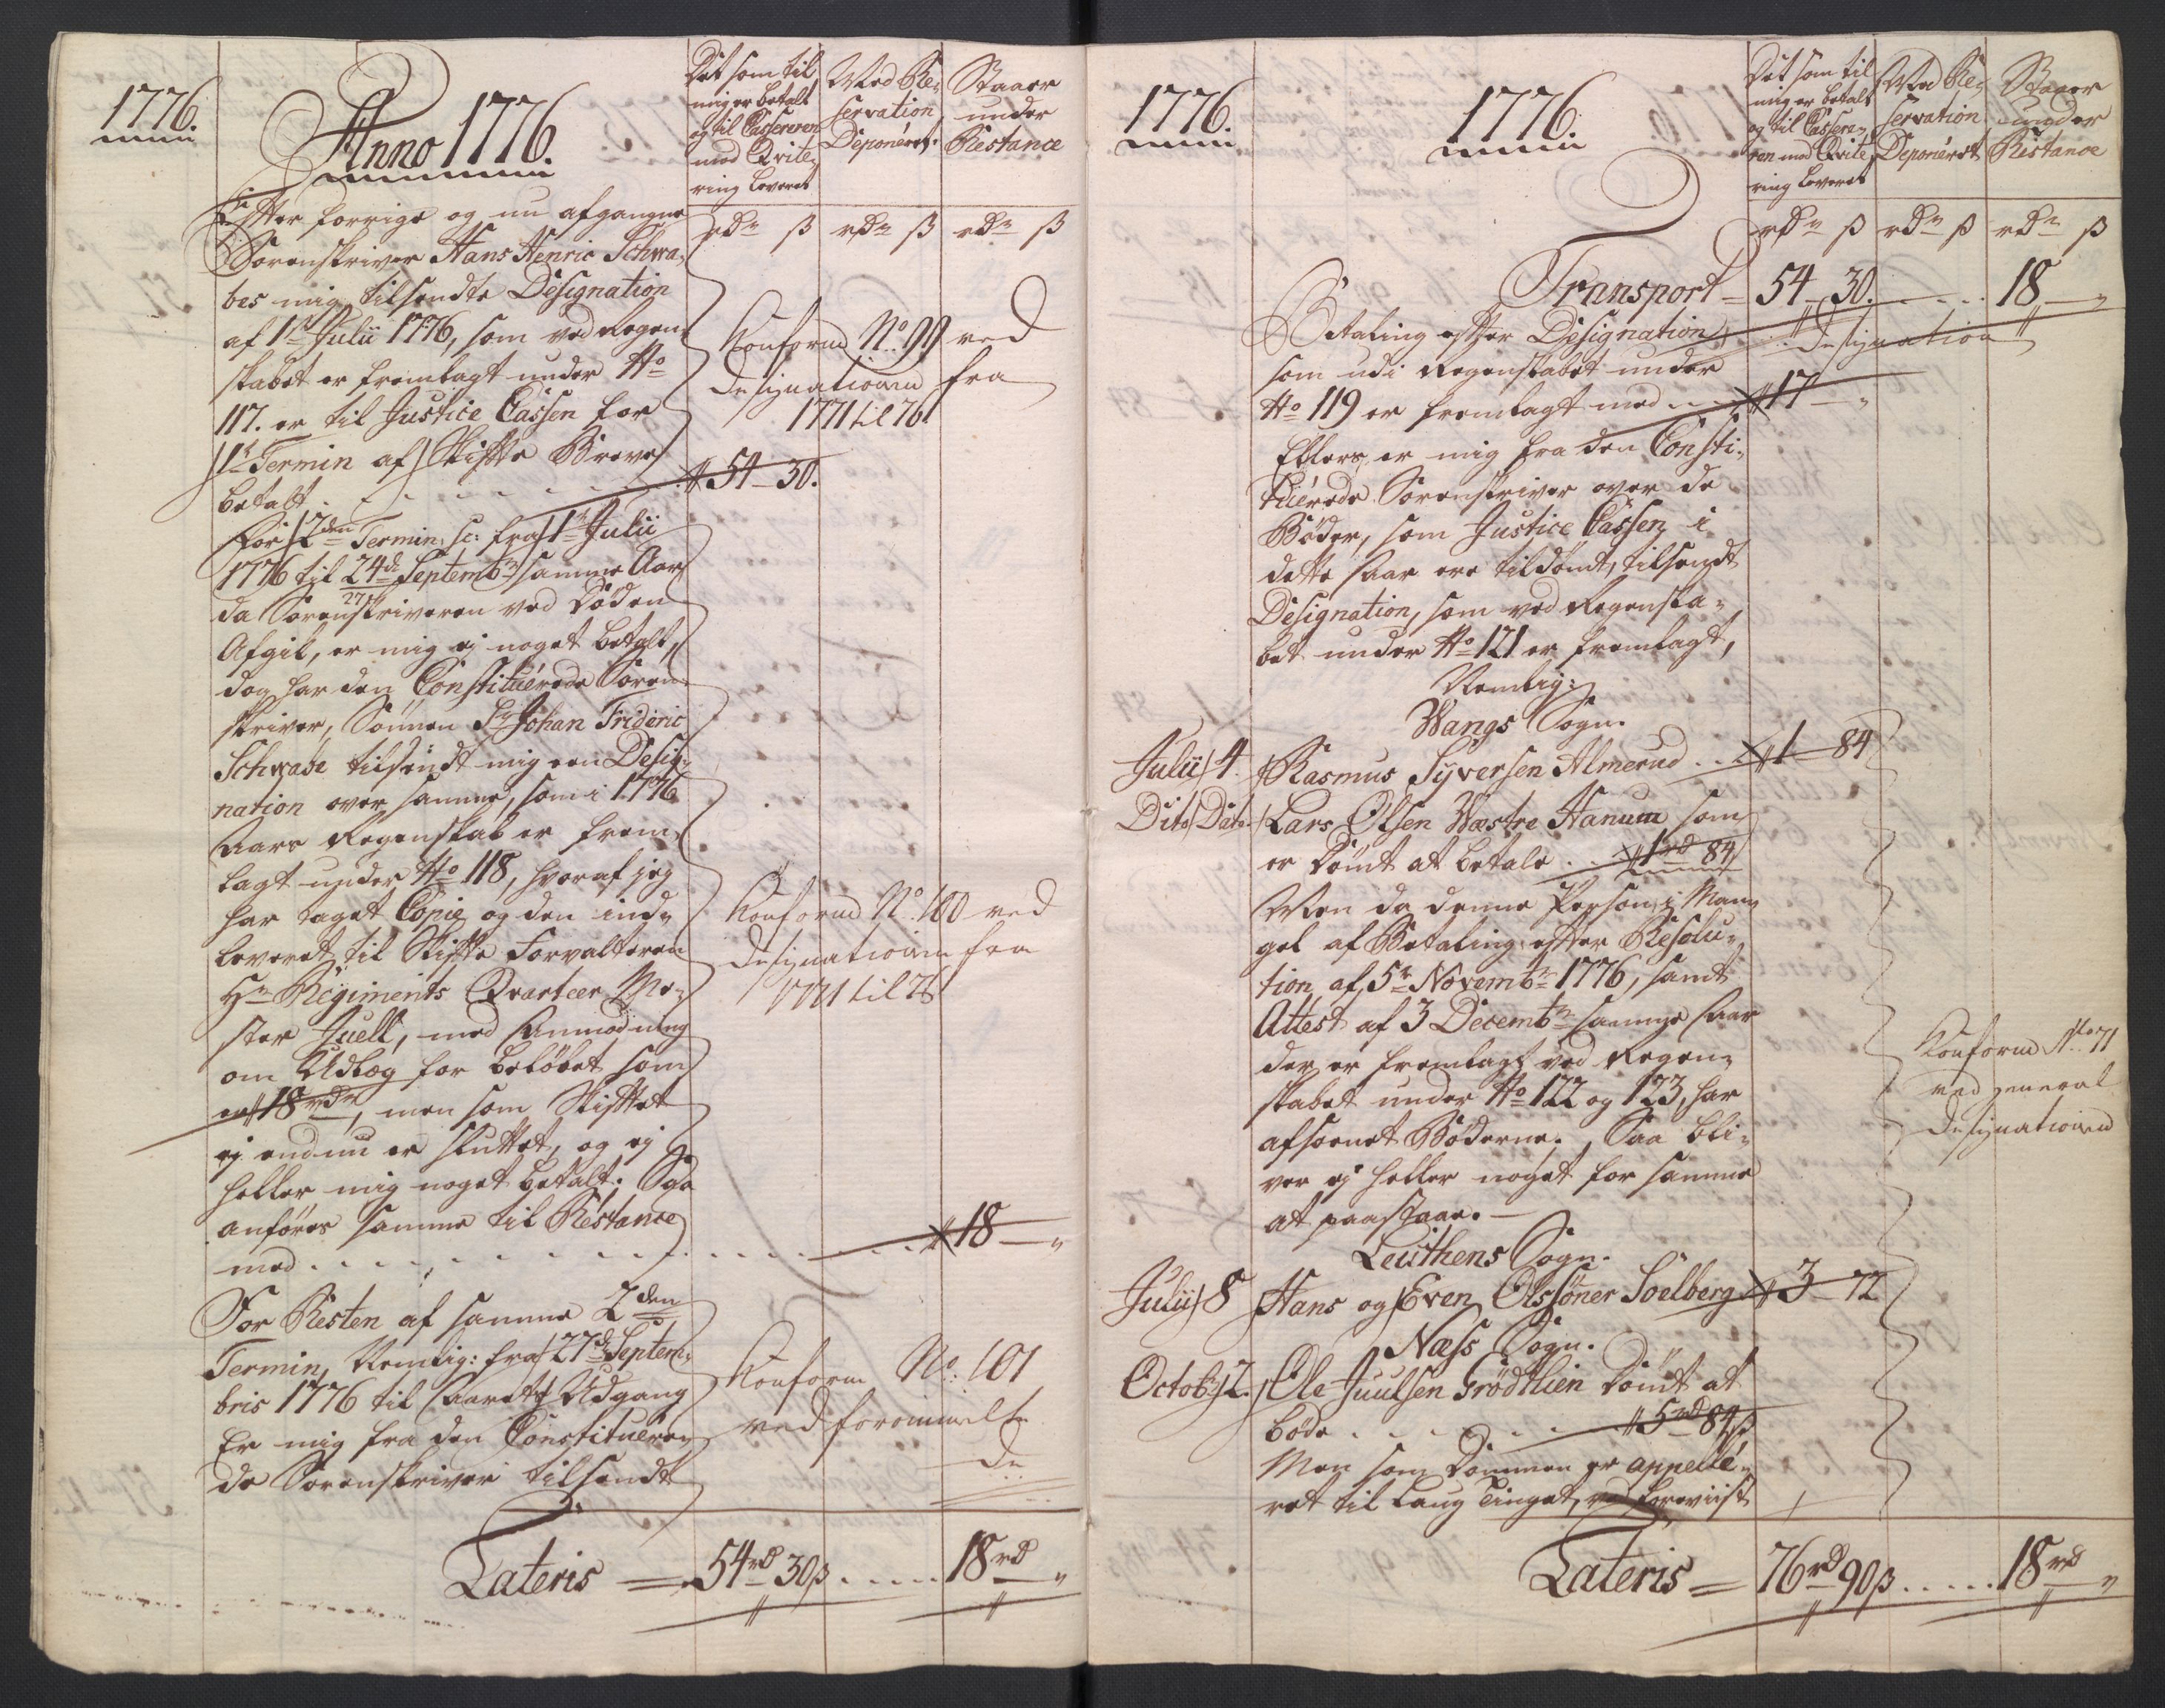 1776.
Anno 1776.
Det som til
mig er betalt
og til Cassereren
mod Qvite-
ring leveret
Med Re-
servation
Deponeret.
Staaer
under
Restance
rdr ß rdr ß rdr ß
Efter forrige og nu afgangne
Sorenskriver Hans Henric Schwa-
bes mig tilsendte Designation
af 1te Julii 1776, som ved Regen-
skabet er fremlagt under No
117. er til Justice Cassen for
1te Termin af Skifte Breve
betalt . . . . . . . 54 - 30.
Konform No. 99 ved
designationen fra
1771 til 76
For 2den Termin, sc: fra 1te Julii
1776 til 24de Septembr samme Aar
27
da Sorenskriveren ved Døden
Afgik, er mig ej noget betalt,
dog har den Constituerede Soren-
skriver, Sønnen Sr Johan Frideric
Schwabe tilsendt mig een Desig-
nation over samme, som i 1776
Aars Regenskab er frem-
lagt under No 118, hvoraf jeg
har taget Copie og den ind-
leveret til Skifte Forvalteren
Hr Regiments Qvarteer Me-
ster Juell, med Anmodning
om Udlæg for beløbet som
er 18 rdr, men som Skiftet
ej endnu er sluttet, og ej
heller mig noget betalt; Saa
anføres samme til Restance
med . . . . . . . . . . . 18 - "
Konform No. 100 ved
designationen fra
1771 til 76
For Resten af samme 2den
Termin, Nemlig: fra 27de Septem-
bris 1776 til Aarets Udgang
Er mig fra den Constituere-
de Sorenskriver tilsendt
Konform No. 101
ved forommelte
de
Lateris = 54 rd 30 ß . . . . . 18 rd "
1776.
1776.
Det som til
mig er betalt
og til Cassere-
ren mod Qvite-
ring leveret
Med Re-
servation
Deponeret
Staaer
under
Restance
rdr ß rdr ß rdr ß
Transport - 54 - 30. . . . . 18 - "
Betaling efter Designation
designation
som udi Regenskabet under
No 119 er fremlagt med . . 17 - "
Ellers er mig fra den Consti-
tuerede Sorenskriver over de
Bøder, som Justice Cassen i
dette Aar ere tildømt, tilsendt
Designation, som ved Regenska-
bet under No 121 er fremlagt,
Nemlig:
Wangs Sogn.
Julii 4. Rasmus Syversen Almerud . . 1 - 84
Dito Dato. Lars Olsen Wæstre Hanum som
er Dømt at betale . . 1 rd 84
Men da denne Person, i Man-
gel af Betaling, efter Resolu-
tion af 5te Novembr 1776, samt
Attest af 3 Decembr samme Aar
der er fremlagt ved Regen-
skabet under No 122 og 123, har
afsoenet Bøderne. Saa bli-
ver ej heller noget for samme
at paastaae. -
Konform No. 71
ved general
designationen
Leuthens Sogn.
Julii 8 Hans og Even Olssöner Soelberg 3 - 72
Næss Sogn.
Octobr 2. Ole Juulsen Grödtlien Dömt at
bøde . . . . . . 5 rd 84 ß
Men som Dommen er appelle-
ret til Laug Tinget, foreviist
Lateris = 76 rd 90 ß . . . . . 18 rd "